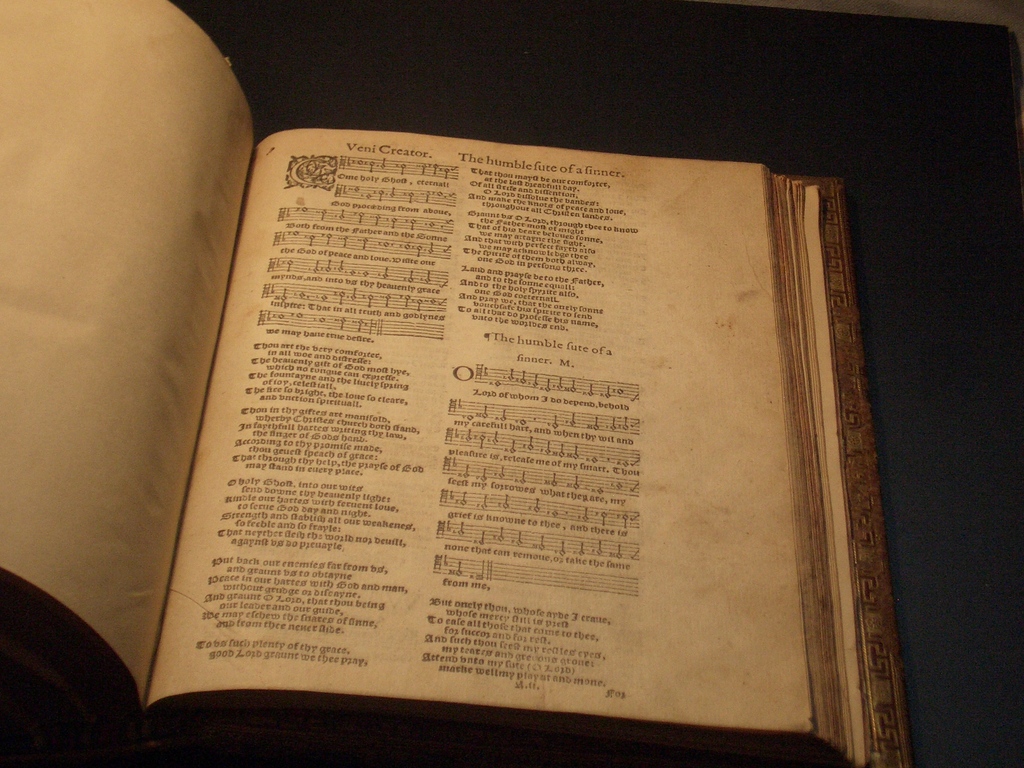 Veni Creator.
The humble sute of a sinner.
Come holy Ghost, eternall
God proceding from aboue,
Both from the Father and the Sonne
the God of peace and loue. Visite our
myndes, and into vs thy heauenly grace
inspire: That in all truth and godlynes
we may haue true desire.
Thou art the very comforter,
in all woe and distresse:
The heauenly gift of God most hye,
which no tongue can expresse.
The fountayne and the liuely spring
of ioy, celestiall.
The fire so bright, the loue so cleare,
and vnction spirituall.
Thou in thy giftes art manifold,
wherby Christes church doth stand,
In faythfull hartes writing thy law,
the finger of Gods hand.
According to thy promise made,
thou geuest speach of grace:
That through thy help, the prayse of God
may stand in euery place.
O holy Ghost, into our wits
send downe thy heauenly light:
Kindle our hartes with feruent loue,
to serue God day and night.
Strength and stablish all our weakenes,
so feeble and so frayle:
That neyther flesh the world nor deuill,
agaynst vs do preuayle.
Put back our enemies far from vs,
and graunt vs to obtayne
Peace in our hartes with God and man,
without grudge or disdayne.
And graunt O Lord, that thou being
our leader and our guide,
We may eschew the snares of sinne,
and from thee neuer slide.
To vs such plenty of thy grace,
good Lord graunt we thee pray,
That thou mayst be our comforter,
at the last dreadfull day.
Of all strife and dissention,
O Lord dissolue the bandes:
And make the knots of peace and loue,
throughout all Christen landes.
Graunt vs O Lord, through thee to know
the Father most of might
That of his deare beloued sonne,
we may attayne the sight.
And that with perfect fayth also
we may acknowledge thee
The spirite of them both alway,
one God in persons three.
Laud and prayse be to the Father,
and to the sonne equall:
And to the holy spyrite also,
one God coeternall.
And pray we, that the onely sonne
vouchsafe his spirite to send
To all that do professe his name,
vnto the worldes end.
¶The humble sute of a
sinner. M.
O Lord of whom I do depend, behold
my carefull hart, and when thy wil and
pleasure is, release me of my smart. Thou
seest my sorrowes what they are, my
grief is knowne to thee, and there is
none that can remoue, or take the same
from me,
But onely thou, whose ayde I craue,
whose mercy still is prest
To ease all those that come to thee,
for succor and for rest.
And such thou seest my restles eyes,
my teares and greuous grone:
Attend vnto my sute (O Lord)
marke well my playnt and mone.
A.ii.
For